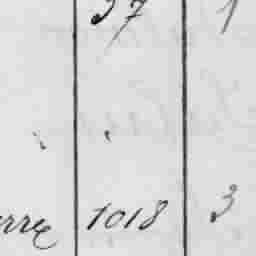 37 1
rre 1018 3